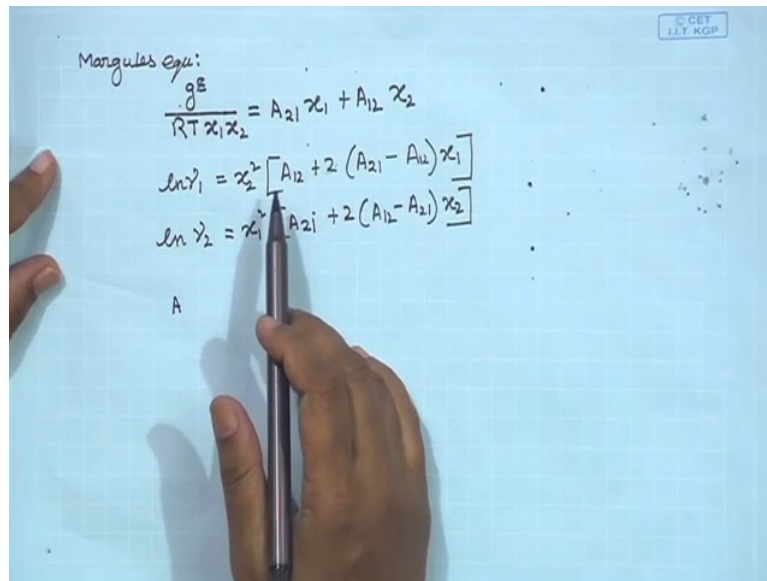 © CET
I.I.T. KGP
Margules equ:
g^E / RT x₁x₂ = A₂₁ x₁ + A₁₂ x₂
ln γ₁ = x₂² [A₁₂ + 2 (A₂₁ − A₁₂) x₁]
ln γ₂ = x₁² [A₂₁ + 2 (A₁₂ − A₂₁) x₂]
A